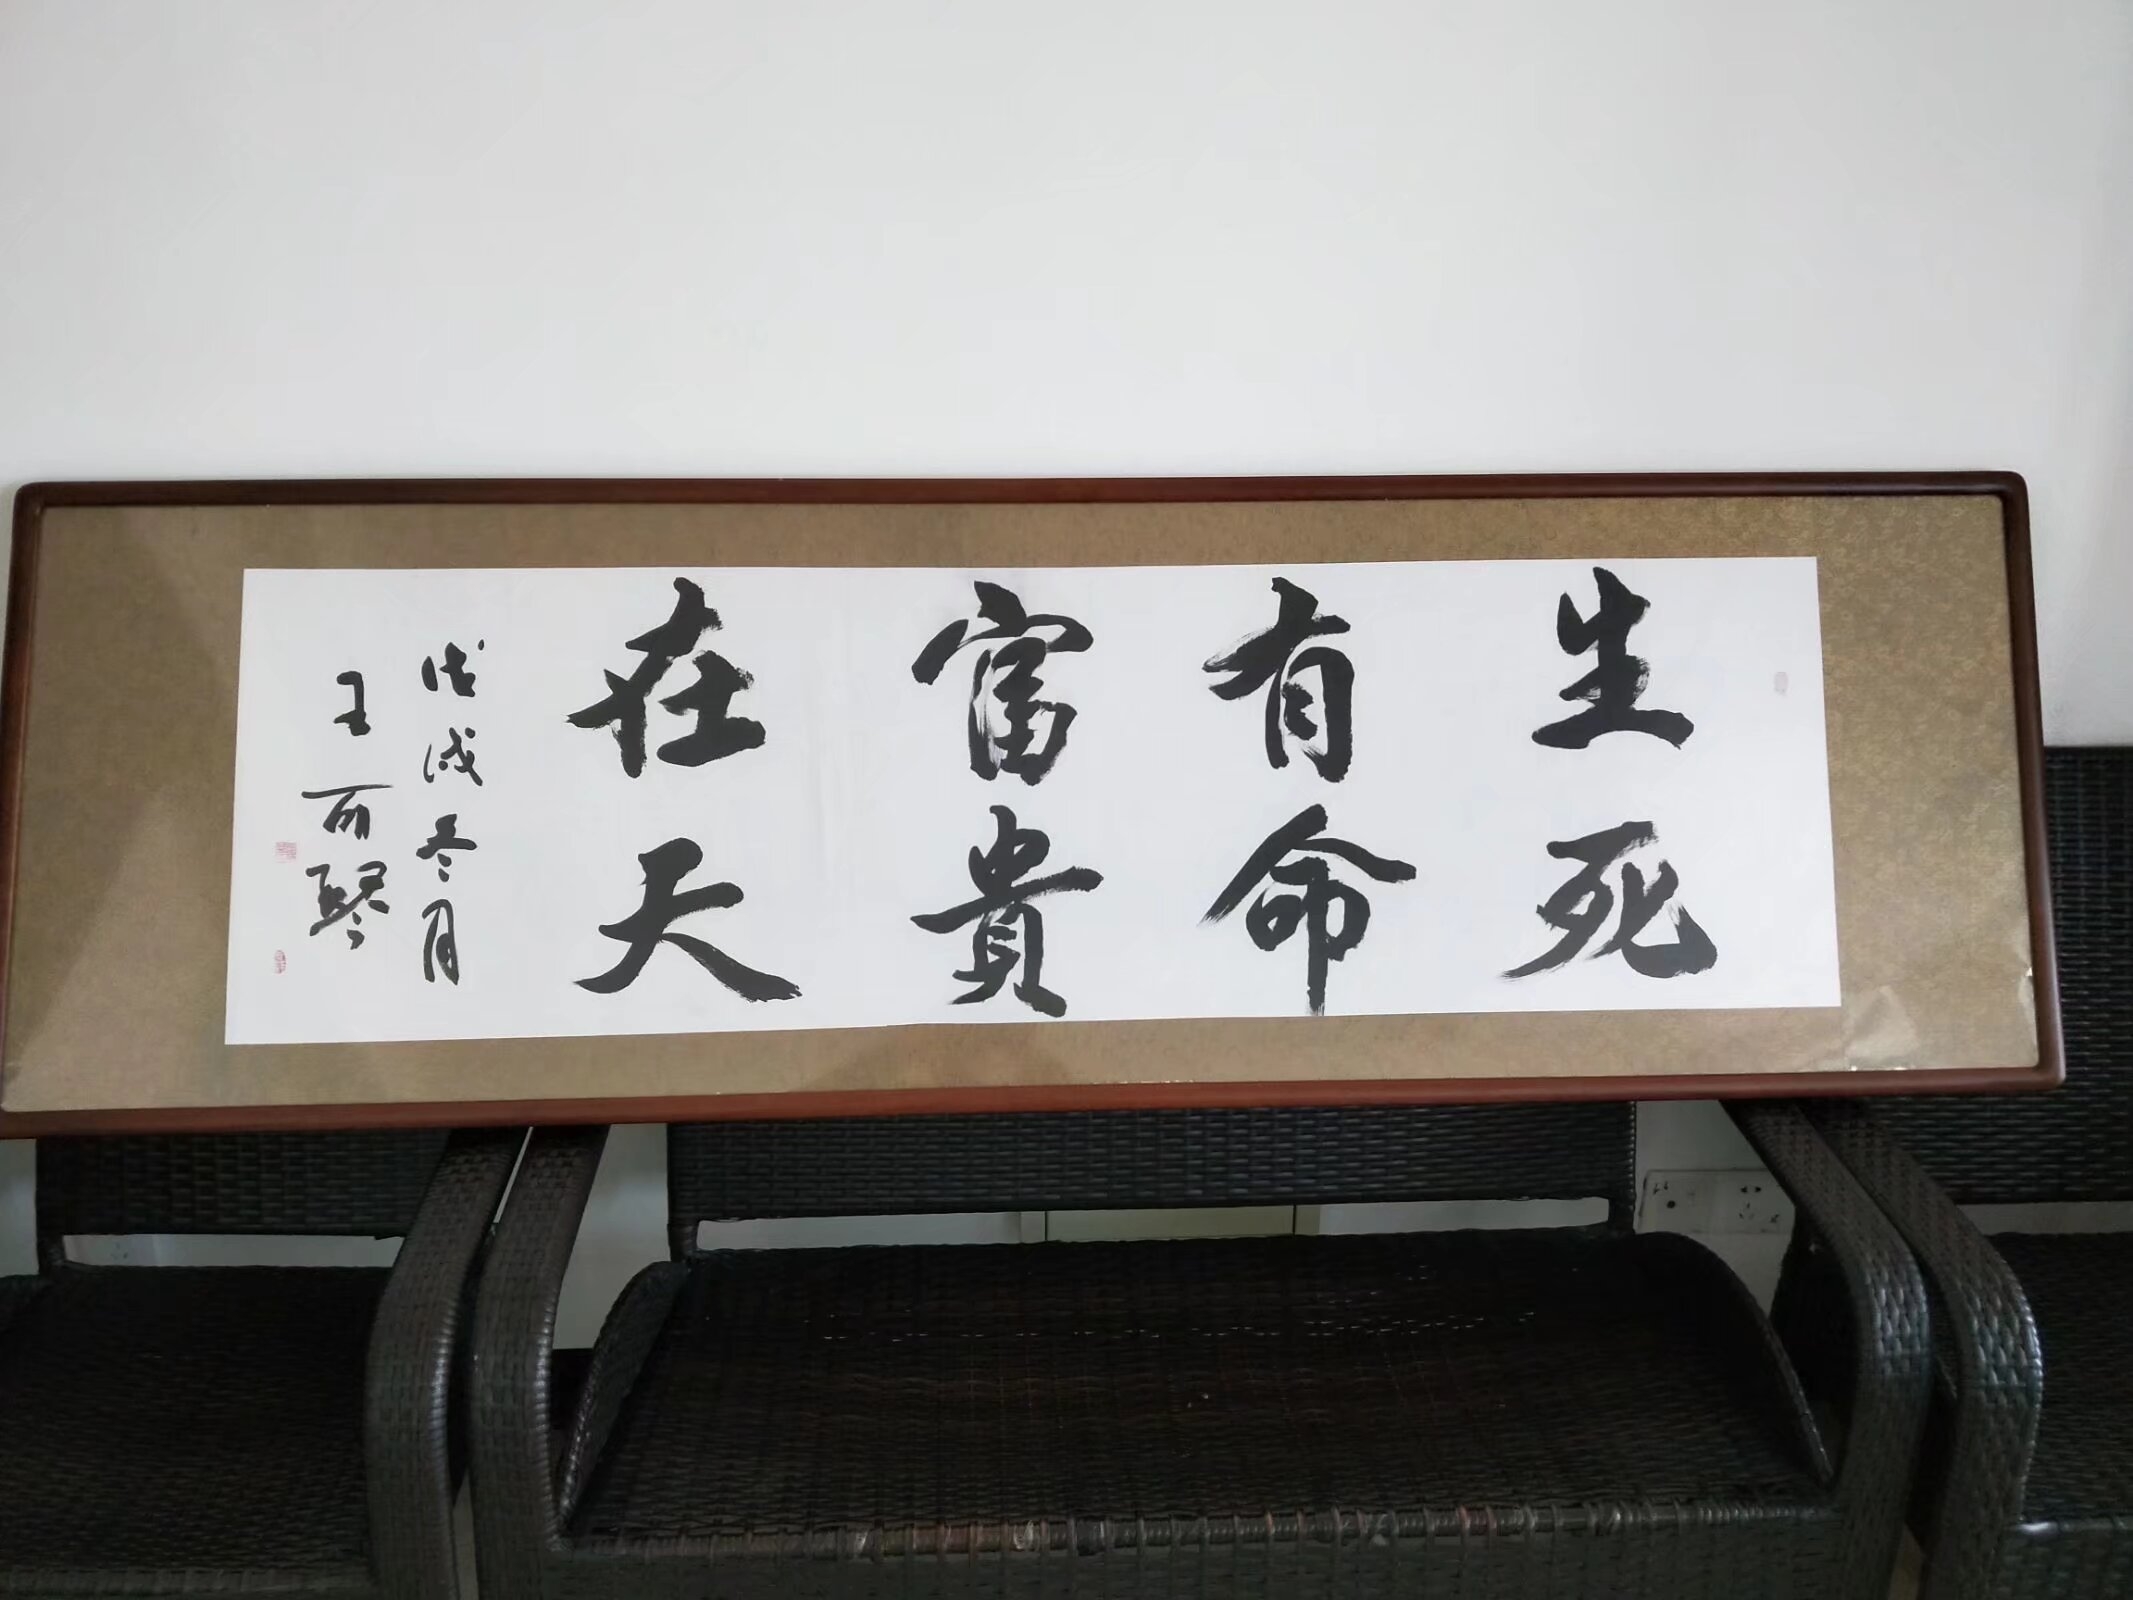 生死
有命
富貴
在天
戊戌冬月
王丽琴